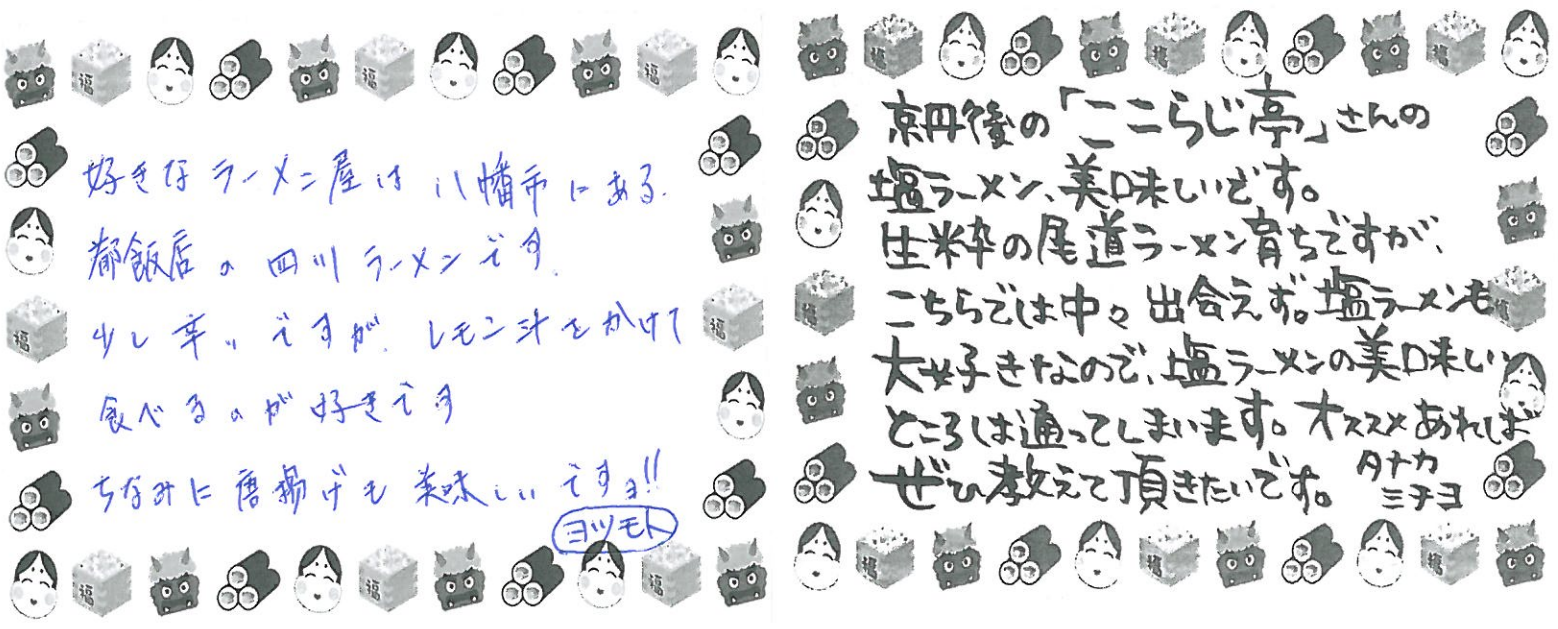 好きなラーメン屋は八幡市にある.
都飯店の四川ラーメンです.
少し辛いですが、レモン汁をかけて
食べるのが好きです
ちなみに唐揚げも美味しいですョ!!
ヨツモト
京丹後の「ここらじ亭」さんの
塩ラーメン、美味しいです。
生粋の尾道ラーメン育ちですが、
こちらでは中々出会えず。塩ラーメンも
大好きなので、塩ラーメンの美味しい
ところは通ってしまいます。オススメあれば
ぜひ教えて頂きたいです。 タナカ
ミチヨ
福
福
福
福
福
福
福
福
福
福
福
福